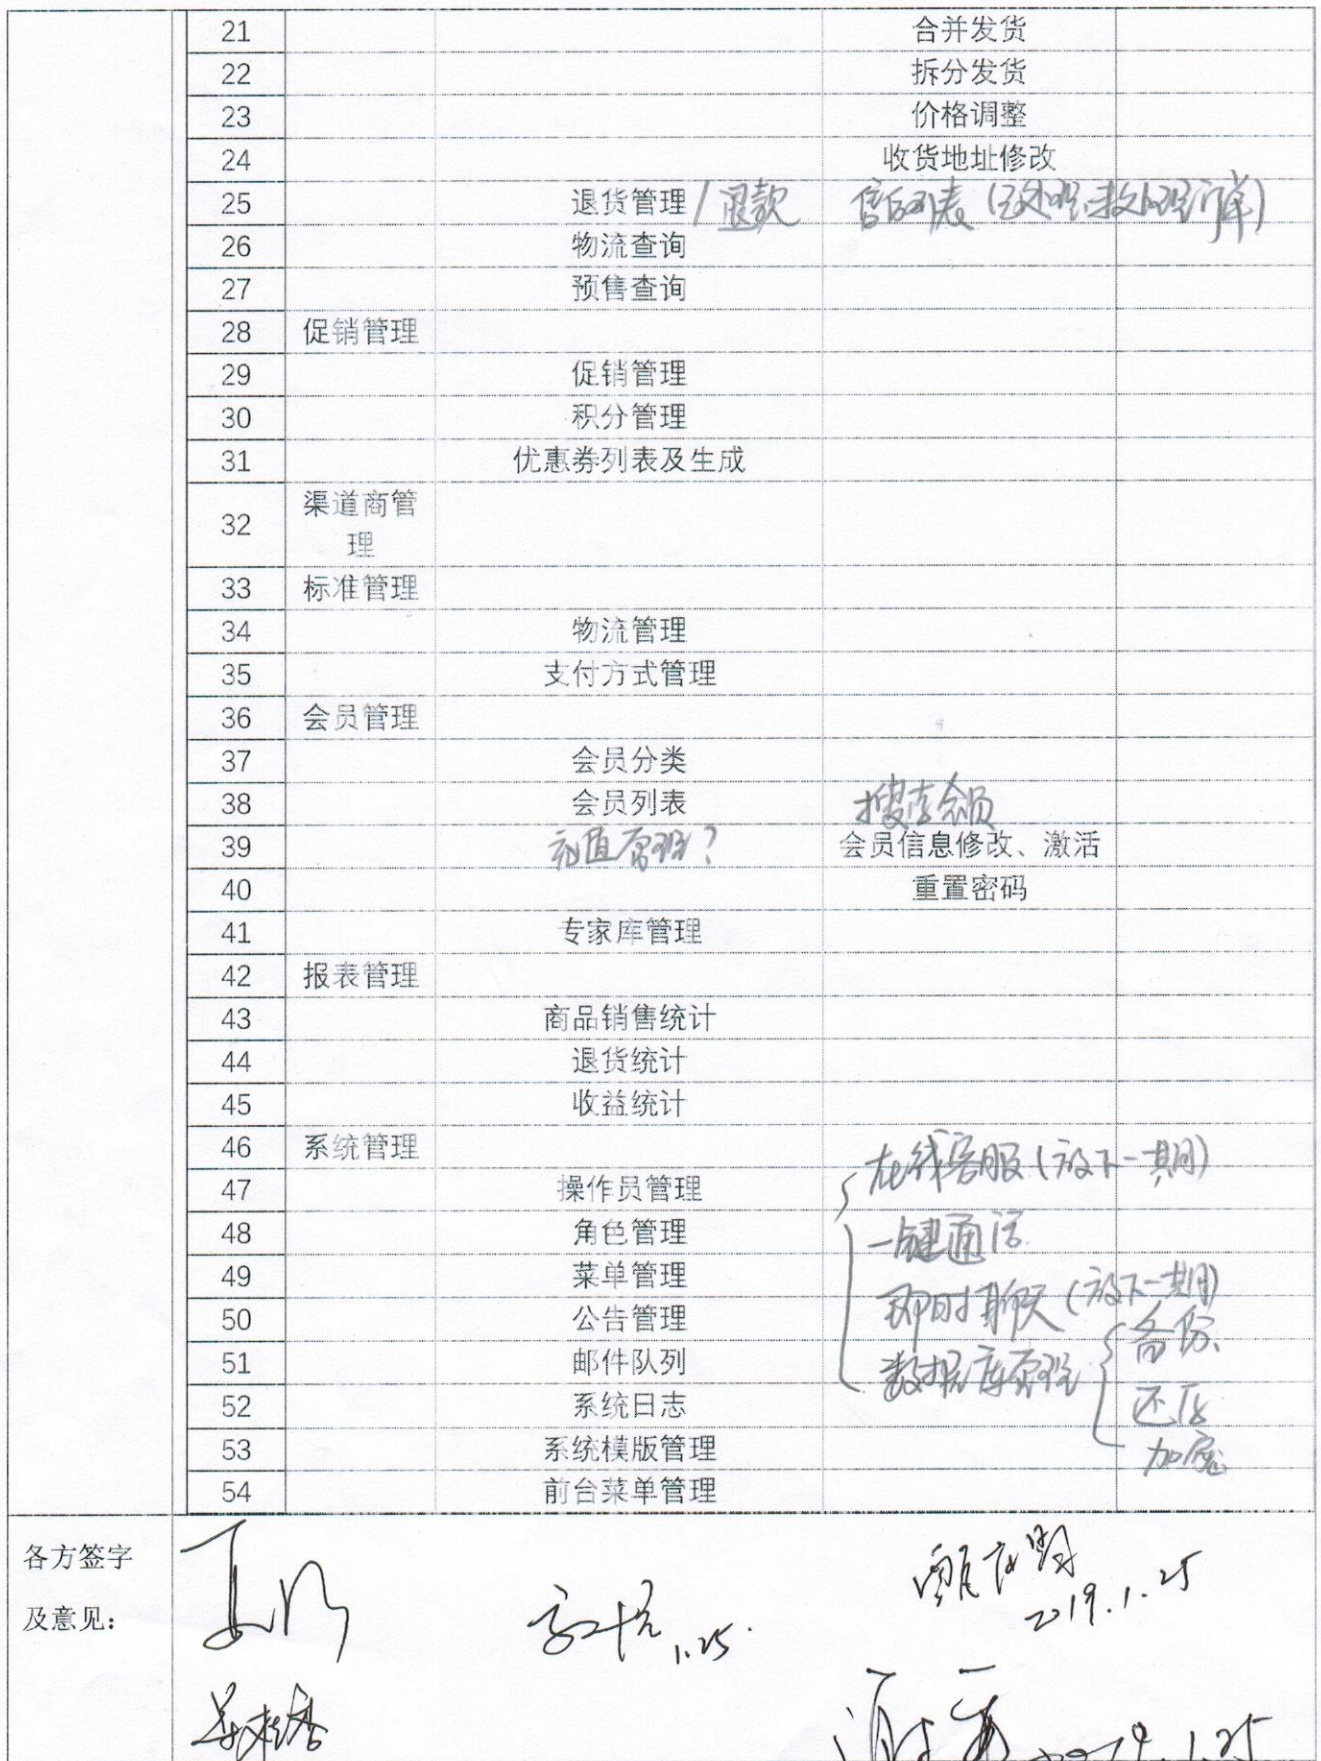 21 合并发货
22 拆分发货
23 价格调整
24 收货地址修改
25 退货管理 / 退款 售后列表 (已处理、未处理订单)
26 物流查询
27 预售查询
28 促销管理
29 促销管理
30 积分管理
31 优惠券列表及生成
32 渠道商管
理
33 标准管理
34 物流管理
35 支付方式管理
36 会员管理
37 会员分类
38 会员列表 搜索会员
39 充值管理? 会员信息修改、激活
40 重置密码
41 专家库管理
42 报表管理
43 商品销售统计
44 退货统计
45 收益统计
46 系统管理
在线客服 (放下一期)
47 操作员管理
48 角色管理 一键通话
49 菜单管理
即时聊天 (放下一期)
50 公告管理 备份、
51 邮件队列 数据库管理
52 系统日志 还原
53 系统模版管理 加密
54 前台菜单管理
各方签字
2019.1.25
及意见:
1.25.
2019.1.25